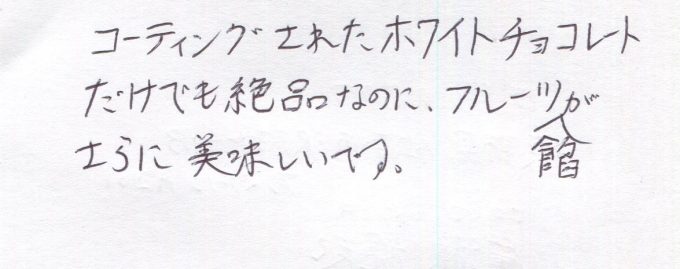 コーティングされたホワイトチョコレート
だけでも絶品なのに、フルーツ餡が
さらに美味しいです。